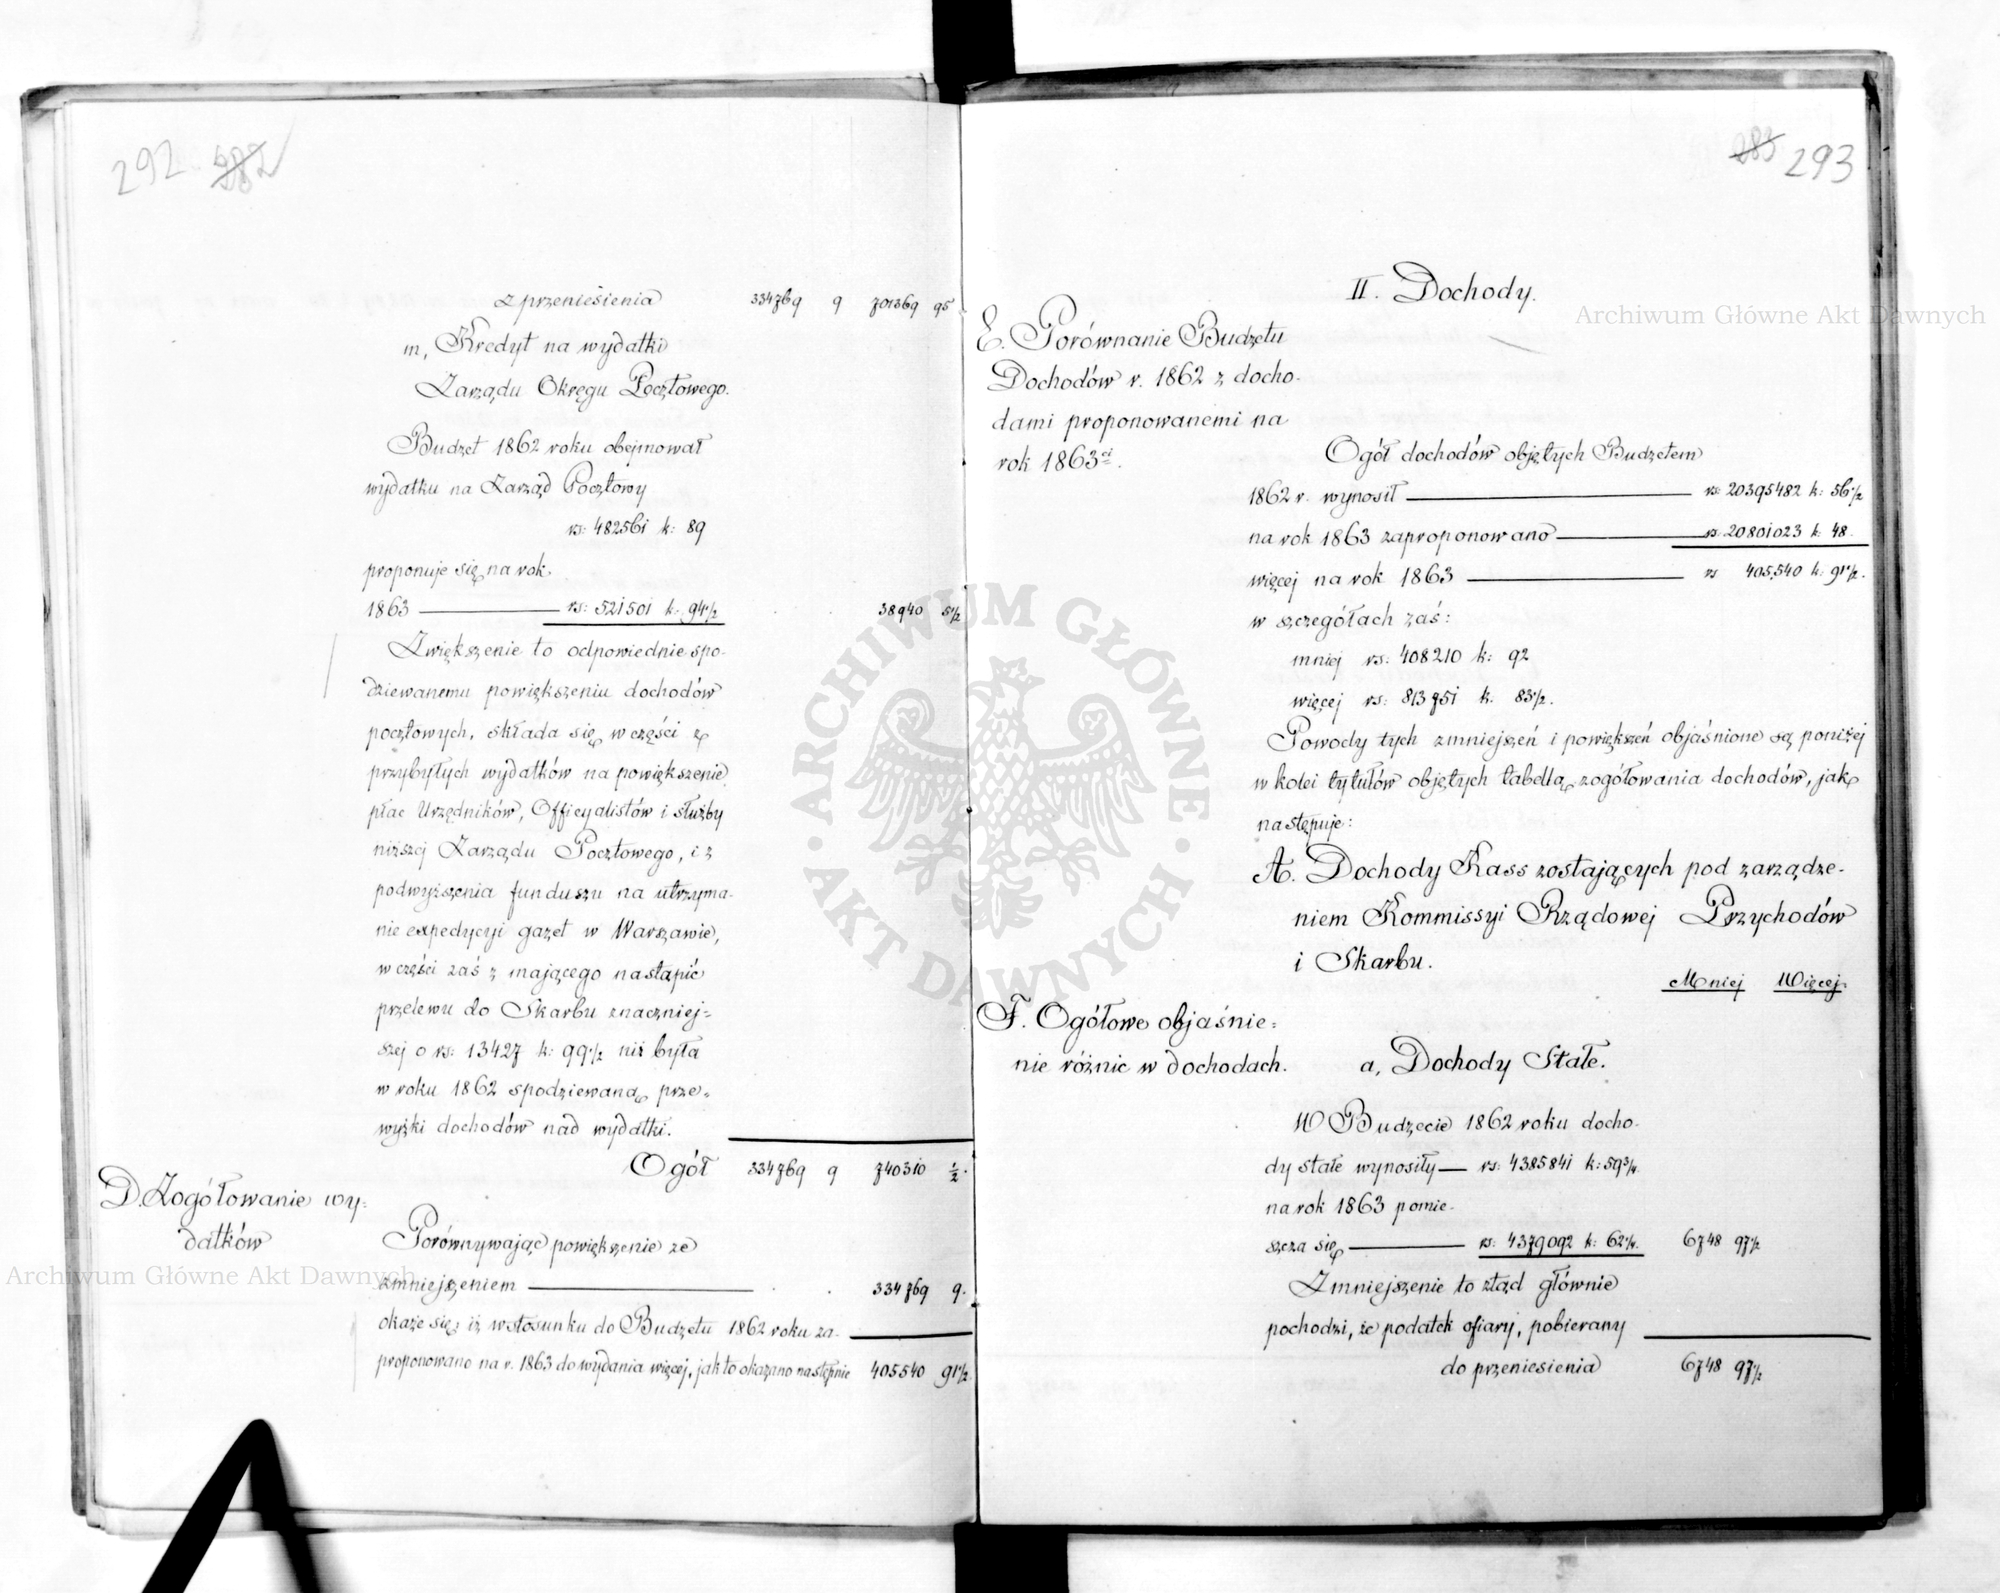 292 282
z przeniesienia 334769 9 701369 95
m, Kredyt na wydatki
Zarządu Okręgu Pocztowego.
Budżet 1862 roku obejmował
wydatku na Zarząd Pocztowy
rs: 482561 k: 89
proponuje się na rok
1863 rs: 521501 k. 94 1/2 38940 5 1/2
Zwiększenie to odpowiednie spo-
dziewanemu powiększeniu dochodów
pocztowych, składa się w części z
przybyłych wydatków na powiększenie
płac Urzędników, Officyalistów i służby
niższej Zarządu Pocztowego, i z
podwyższenia funduszu na utrzyma-
nie expedycyi gazet w Warszawie,
w części zaś z mającego nastąpić
przelewu do Skarbu znaczniej=
szej o rs: 13427 k: 99 1/2 niż była
w roku 1862 spodziewana, prze=
wyżki dochodów nad wydatki.
Ogół 334769 9 740310 1/2.
D. Zogółowanie wy=
datków
Porównywając powiększenie ze
zmniejszeniem 334769 9.
okaże się; iż w stosunku do Budżetu 1862 roku za-
proponowano na r. 1863 do wydania więcej, jak to okazano następnie 405540 91 1/2
283 293
II. Dochody.
E. Porównanie Budżetu
Dochodów r. 1862 z docho-
dami proponowanemi na
rok 1863ci.
Ogół dochodów objętych Budżetem
1862 r. wynosił rs: 20395482 k: 56 1/2
na rok 1863 zaproponowano rs 20801023 k: 48.
więcej na rok 1863 rs 405,540 k: 91 1/2.
w szczegółach zaś:
mniej rs: 408210 k: 92
więcej rs: 813751 k. 83 1/2.
Powody tych zmniejszeń i powiększeń objaśnione są poniżej
w kolei tytułów objętych tabellą zogółowania dochodów, jak
następuje:
A. Dochody Kass zostających pod zarządze-
niem Kommissyi Rządowej Przychodów
i Skarbu.
Mniej Więcej
F. Ogółowe objaśnie=
nie różnic w dochodach.
a, Dochody Stałe.
W Budżecie 1862 roku docho-
dy stałe wynosiły rs: 4385841 k: 59 3/4
na rok 1863 pomie-
szcza się rs: 4379092 k: 62 1/4. 6748 97 1/2
Zmniejszenie to ztąd głównie
pochodzi, że podatek ofiary, pobierany
do przeniesienia 6748 97 1/2
Archiwum Główne Akt Dawnych
Archiwum Główne Akt Dawnych
ARCHIWUM GŁÓWNE · AKT DAWNYCH ·